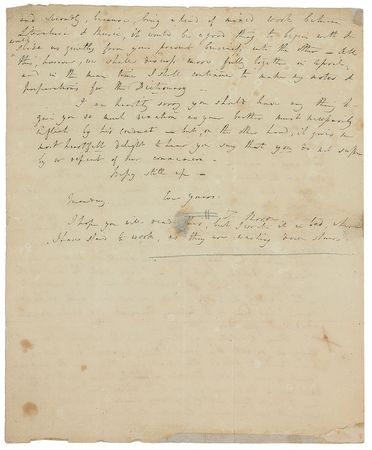 and secondly, because, being a kind of mixed work between
Literature & Music, it would be a good thing to begin with &
would slide us quietly from your present business into the other – All
this, however, we shall discuss more fully together in April,
and in the mean time I shall continue to make my notes &
preparations for the Dictionary –
I am heartily sorry you should have any thing to
give you so much vexation as your brother must necessarily
inflict by his conduct – but, on the other hand, it gives me
most heartfelt delight to hear you say that you do not suffer
by or repent of her connexion –
Keep still up –
Ever yours
T. Moore
I hope you will read this, but I write it in bed, where
I have staid to work, as they are waiting down stairs